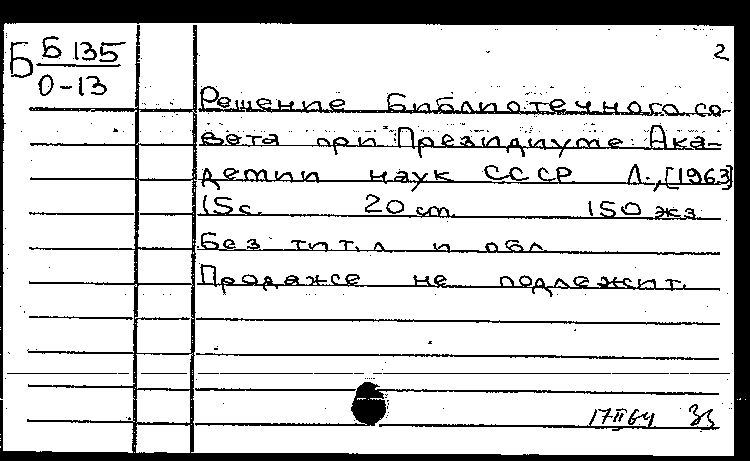 2
Б Б 135
О-13
Решение Библиотечного со-
вета при Президиуме Ака-
демии наук СССР Л., [1963]
15 с. 20 ст. 150 экз.
Без тит. л и обл
Продаже не подлежит.
17 II 64